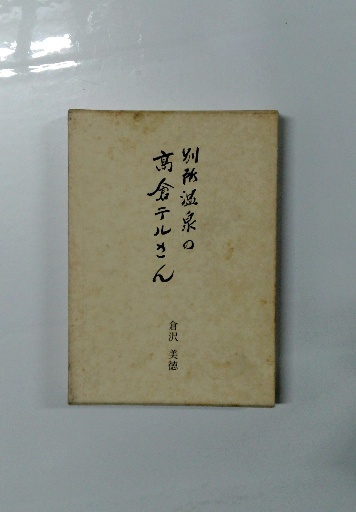 別所温泉の
高倉テルさん
倉沢 美徳